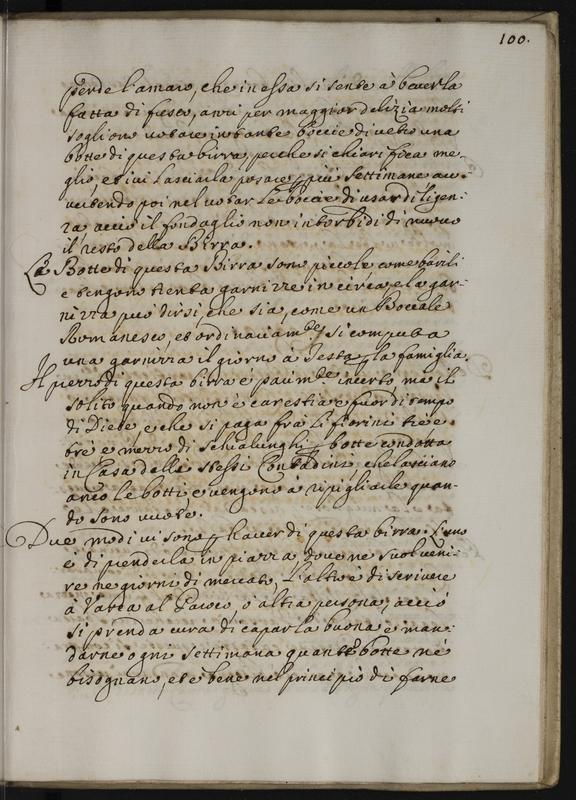 100.
perde l'amaro, che in essa si sente à beverla
fatta di fresco, anzi per maggior delizia molti
sogliono votare in tante boccie di vetro una
botte di questa birra, perche si chiarifica me-
glio, et ivi lasciarla posare p più settimane av-
vertendo poi nel votar le boccie di usar diligen-
za acciò il fondaglio non intorbidi di nuovo
il resto della Birra.
Le Botte di questa Birra sono piccole come barili
e tengono trenta garnizze in circa, e la gar-
nizza può dirsi, che sia, come un Boccale
Romanesco, et ordinariam.te si computa
una garnizza il giorno à Testa p la famiglia.
Il prezzo di questa birra è parim.te incerto, ma il
solito quando non è carestia è fuor di tempo
di Diete, è che si paga frà li fiorini tre e
tre e mezzo di Schialunghi p botte condotta
in Casa dalli stessi Contadini che lasciano
anco le botti, e vengono à ripigliarle quan-
do sono vuote.
Due modi vi sono p haver di questa birra. L'uno
è di prenderla in piazza, dove ne suol veni-
re ne giorni di mercato, L'altro è di scrivere
à Varca al Paroco, ò altra persona, acciò
si prenda cura di capar la buona e man-
darne ogni settimana quante botte ne
bisognano, et è bene nel principio di farne